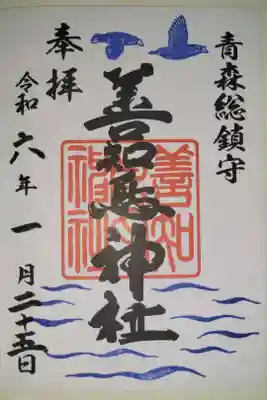 青森総鎮守
善知鳥神社
善知鳥神社
奉拝
令和六年一月二十五日